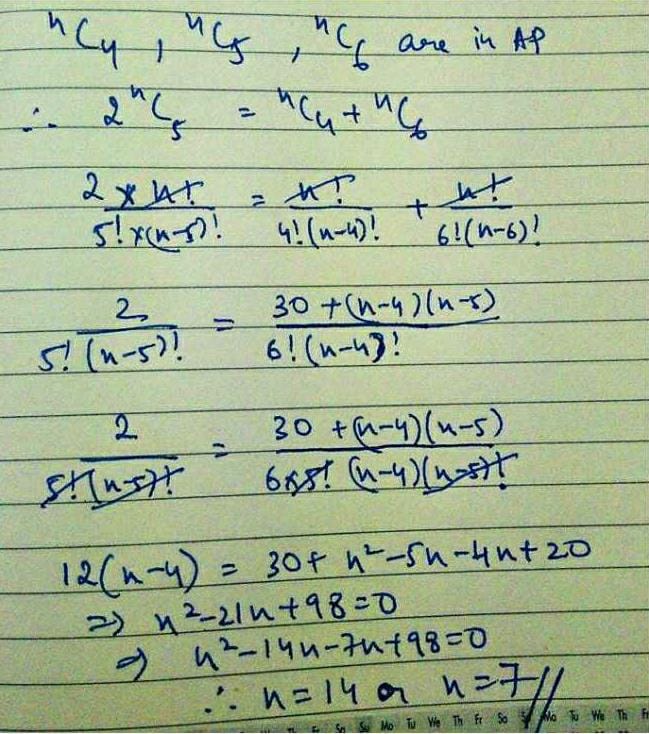 ⁿC₄ , ⁿC₅ , ⁿC₆ are in AP
∴ 2 ⁿC₅ = ⁿC₄ + ⁿC₆
2 × n! / 5! × (n-5)! = n! / 4! (n-4)! + n! / 6! (n-6)!
2 / 5! (n-5)! = 30 + (n-4)(n-5) / 6! (n-4)!
2 / 5! (n-5)! = 30 + (n-4)(n-5) / 6×5! (n-4)(n-5)!
12(n-4) = 30 + n² - 5n - 4n + 20
⇒ n² - 21n + 98 = 0
⇒ n² - 14n - 7n + 98 = 0
∴ n = 14 or n = 7 //
Sa Su Mo Tu We Th Fr Sa S Mo Tu We Th Fr